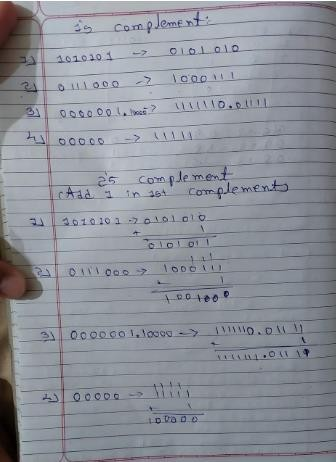 1's complement:
1) 1010101 -> 0101010
2) 0111000 -> 1000111
3) 0000001.10000 -> 1111110.01111
4) 00000 -> 11111
2's complement
(Add 1 in 1st complement)
1) 1010101 -> 0101010
+ 1
0101011
2) 0111000 -> 1000111
+ 1
1001000
3) 0000001.10000 -> 111110.01111
+ 1
4) 00000 -> 11111
+ 1
100000